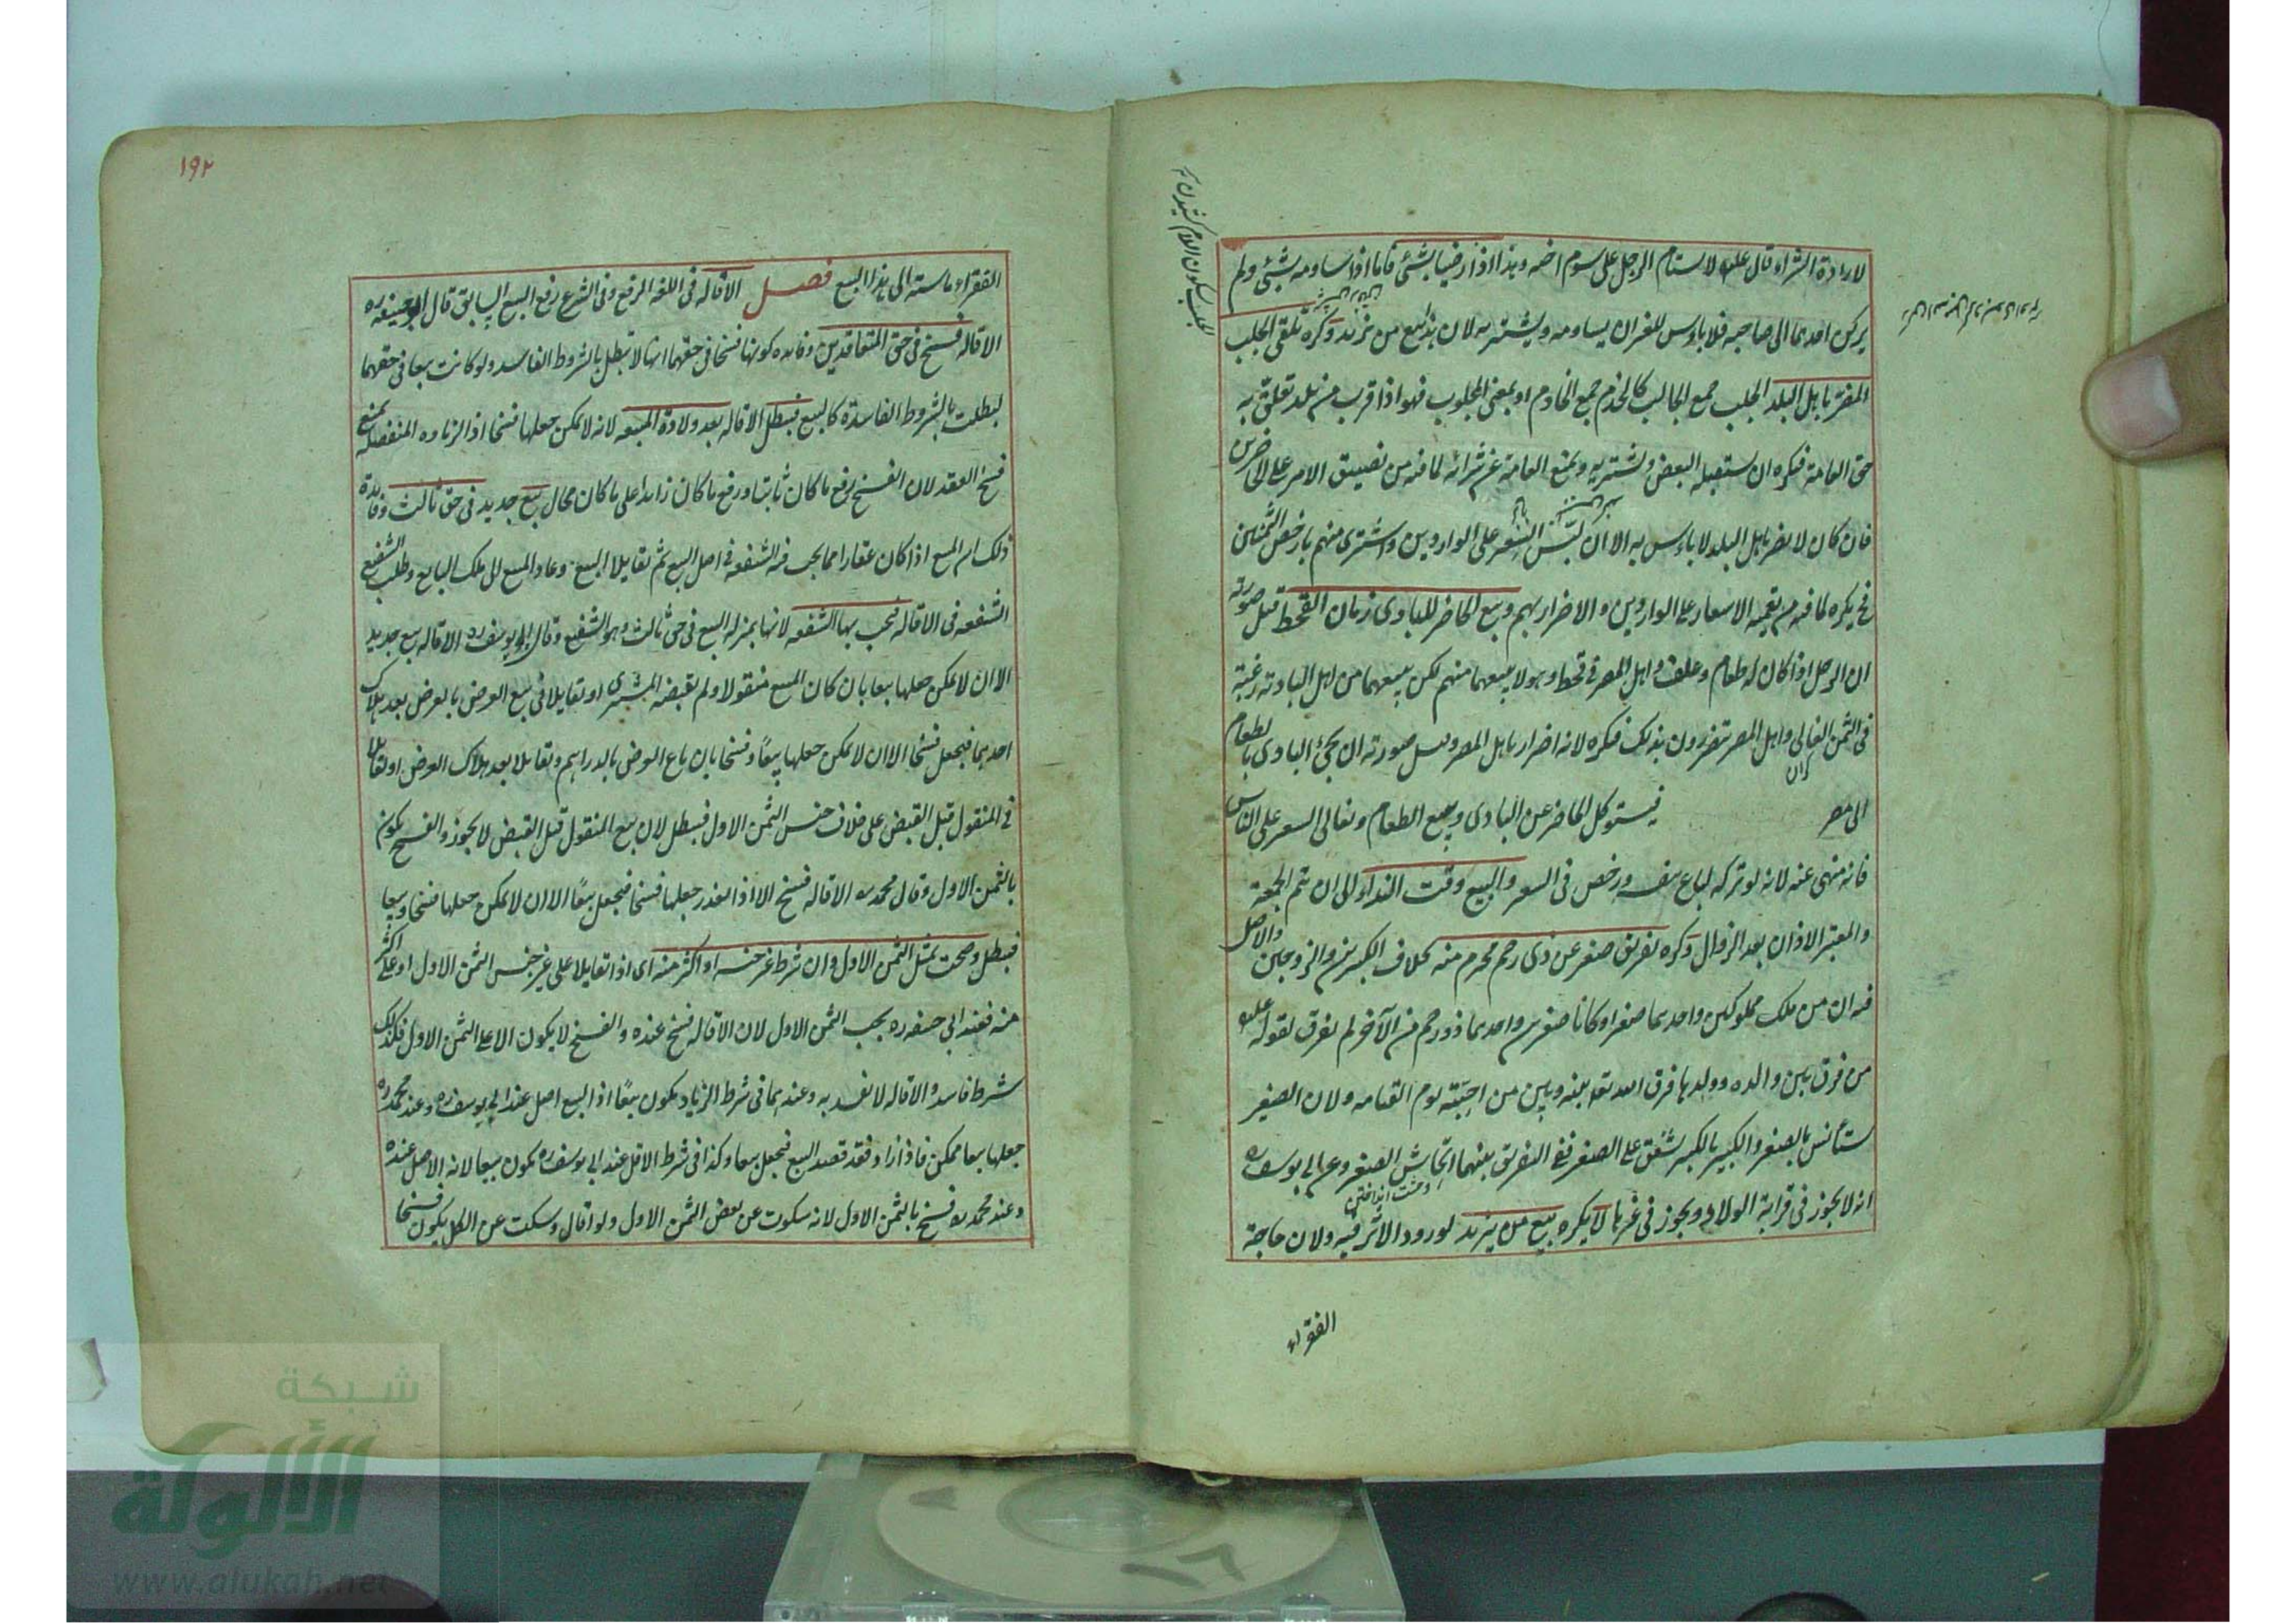 لارادة الشراء وقال علیه لا یستام الرجل علی سوم اخیه وهذا اذا رضیا بشئ فاما اذا ساومه بشئ ولم
یرکن احدهما الی صاحبه فلا باءس للغیر ان یساومه ویشتریه لان هذا بیع من یزید وکره تلقی الجلب
المضر باهل البلد الجلب جمع الجالب کالخدم جمع الخادم او بمعنی المجلوب فهو اذا قرب من بلد تعلق به
حق العامة فیکره ان یستقبله البعض ویشتریه ویمنع العامة عن شرائه لما فیه من تضییق الامر علی الحاضرین
فان کان لا یضر باهل البلد لا باءس به الا ان لبّس السعر علی الواردین واشتری منهم بارخص الثمنین
فح یکره لما فیه من تعمیه الاسعار علی الواردین والاضرار بهم وبیع الحاضر للبادی زمان القحط قیل صورته
ان الرجل اذا کان له طعام وعلف واهل المصر فی قحط وهو لا یبیعهما منهم لکن یبیعهما من اهل البادیة رغبة
فی الثمن الغالی واهل المصر یتضررون بذلک فیکره لانه اضرار باهل المصر وقیل صورته ان یجئ البادی بالطعام
کران
الی مصر فیتوکل الحاضر عن البادی ویبیع الطعام ویغالی السعر علی الناس
فانه منهی عنه لانه لو ترکه لباع بنفسه ورخص فی السعر والبیع وقت النداء الی ان تتم الجمعة
والمعتبر الاذان بعد الزوال وکره تفریق صغیر عن ذی رحم محرم منه بخلاف الکبیرین والزوجین والاصل
فیه ان من ملک مملوکین واحدهما صغیر او کانا صغیرین واحدهما ذو رحم من الآخر لم یفرق لقوله علیه
من فرق بین والدة وولدها فرق الله تعه بینه وبین من احبته یوم القیامه ولان الصغیر
یستأنس بالصغیر والکبیر بالکبیر یشفق علی الصغیر ففی التفریق بینهما ایحاش الصغیر وعن ابی یوسف ره
انه لا یجوز فی قرابة الولاد ویجوز فی غیرها لا یکره بیع من یزید لورود الاثر فیه ولان حاجة
الفقراء
۱۹۲
الفقراء ماسته الی هذا البیع فصل الاقاله فی اللغه الرفع وفی الشرع رفع البیع السابق قال ابو حنیفه ره
الاقاله فسخ فی حق المتعاقدین وفایده کونها فسخا فی حقهما انها لا تبطل بالشروط الفاسد ولو کانت بیعا فی حقهما
لبطلت بالشروط الفاسدة کالبیع فیبطل الاقاله بعد ولادة المبیعه لانه لا یمکن جعلها فسخا اذ الزیاده المنفصله یمنع
فسخ العقد لان الفسخ رفع ما کان ثابتا ورفع ما کان زایدا علی ما کان محال بیع جدید فی حق ثالث وفایدة
ذلک ان المبیع اذا کان عقارا مما یجب فیه الشفعه فی اصل البیع ثم تقایلا البیع وعاد المبیع الی ملک البایع وطلب الشفیع
الشفعه فی الاقاله فیجب بها الشفعه لانها بمنزله البیع فی حق ثالث وهو الشفیع وقال ابو یوسف ره الاقاله بیع جدید
الا ان لا یمکن جعلها بیعا بان کان المبیع منقولا ولم یقبضه المشتری او تقایلا فی بیع العرض بالعرض بعد هلاک
احدهما فیجعل فسخا الا ان لا یمکن جعلها بیعًا وفسخا بان باع العرض بالدراهم وتقایلا بعد هلاک العرض او تقایلا
فی المنقول قبل القبض علی خلاف جنس الثمن الاول فیبطل لان بیع المنقول قبل القبض لا یجوز والفسخ یکون
بالثمن الاول وقال محمد ره الاقاله فسخ الا اذا تعذر جعلها فسخا فیجعل بیعًا الا ان لا یمکن جعلها فسخا وبیعا
فیبطل وصحت بمثل الثمن الاول وان شرط غیر جنسه او اکثر منه ای اذا تقایلا علی غیر جنس الثمن الاول او علی اکثر
منه فعند ابی حنیفه ره یجب الثمن الاول لان الاقاله فسخ عنده والفسخ لا یکون الا علی الثمن الاول فکذلک
شرط فاسد والاقاله لا تفسد به وعندهما فی شرط الزیاد یکون بیعًا اذ البیع اصل عند ابی یوسف ره وعند محمد ره
جعلها بیعا ممکن فاذا زاد فقد قصد البیع فیجعل بیعا وکذا فی شرط الاقل عند ابی یوسف ره یکون بیعا لانه الاصل عنده
وعند محمد ره فسخ بالثمن الاول لانه سکوت عن بعض الثمن الاول ولو اقال وسکت عن الکل یکون فسخا
شبكة
الألوكة
www.alukah.net